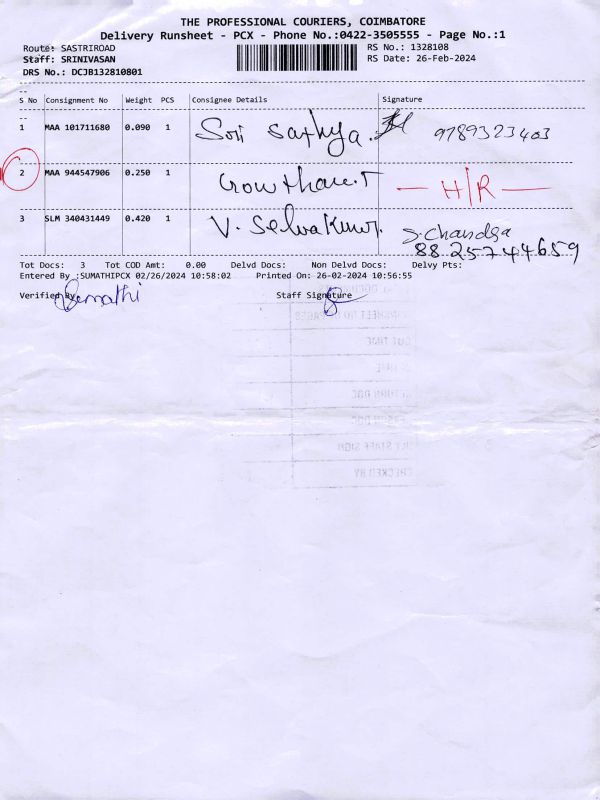 THE PROFESSIONAL COURIERS, COIMBATORE
Delivery Runsheet - PCX - Phone No.:0422-3505555 - Page No.:1
Route: SASTRIROAD RS No.: 1328108
Staff: SRINIVASAN RS Date: 26-Feb-2024
DRS No.: DCJB132810801
S No Consignment No Weight PCS Consignee Details Signature
1 MAA 101711680 0.090 1 Sori Sathya. 9789323403
2 MAA 944547906 0.250 1 Gowtham.T — H/R —
3 SLM 340431449 0.420 1 V. Selvakumar. S. Chandra
8825744659
Tot Docs: 3 Tot COD Amt: 0.00 Delvd Docs: Non Delvd Docs: Delvy Pts:
Entered By :SUMATHIPCX 02/26/2024 10:58:02 Printed On: 26-02-2024 10:56:55
Verified By Sumathi Staff Signature